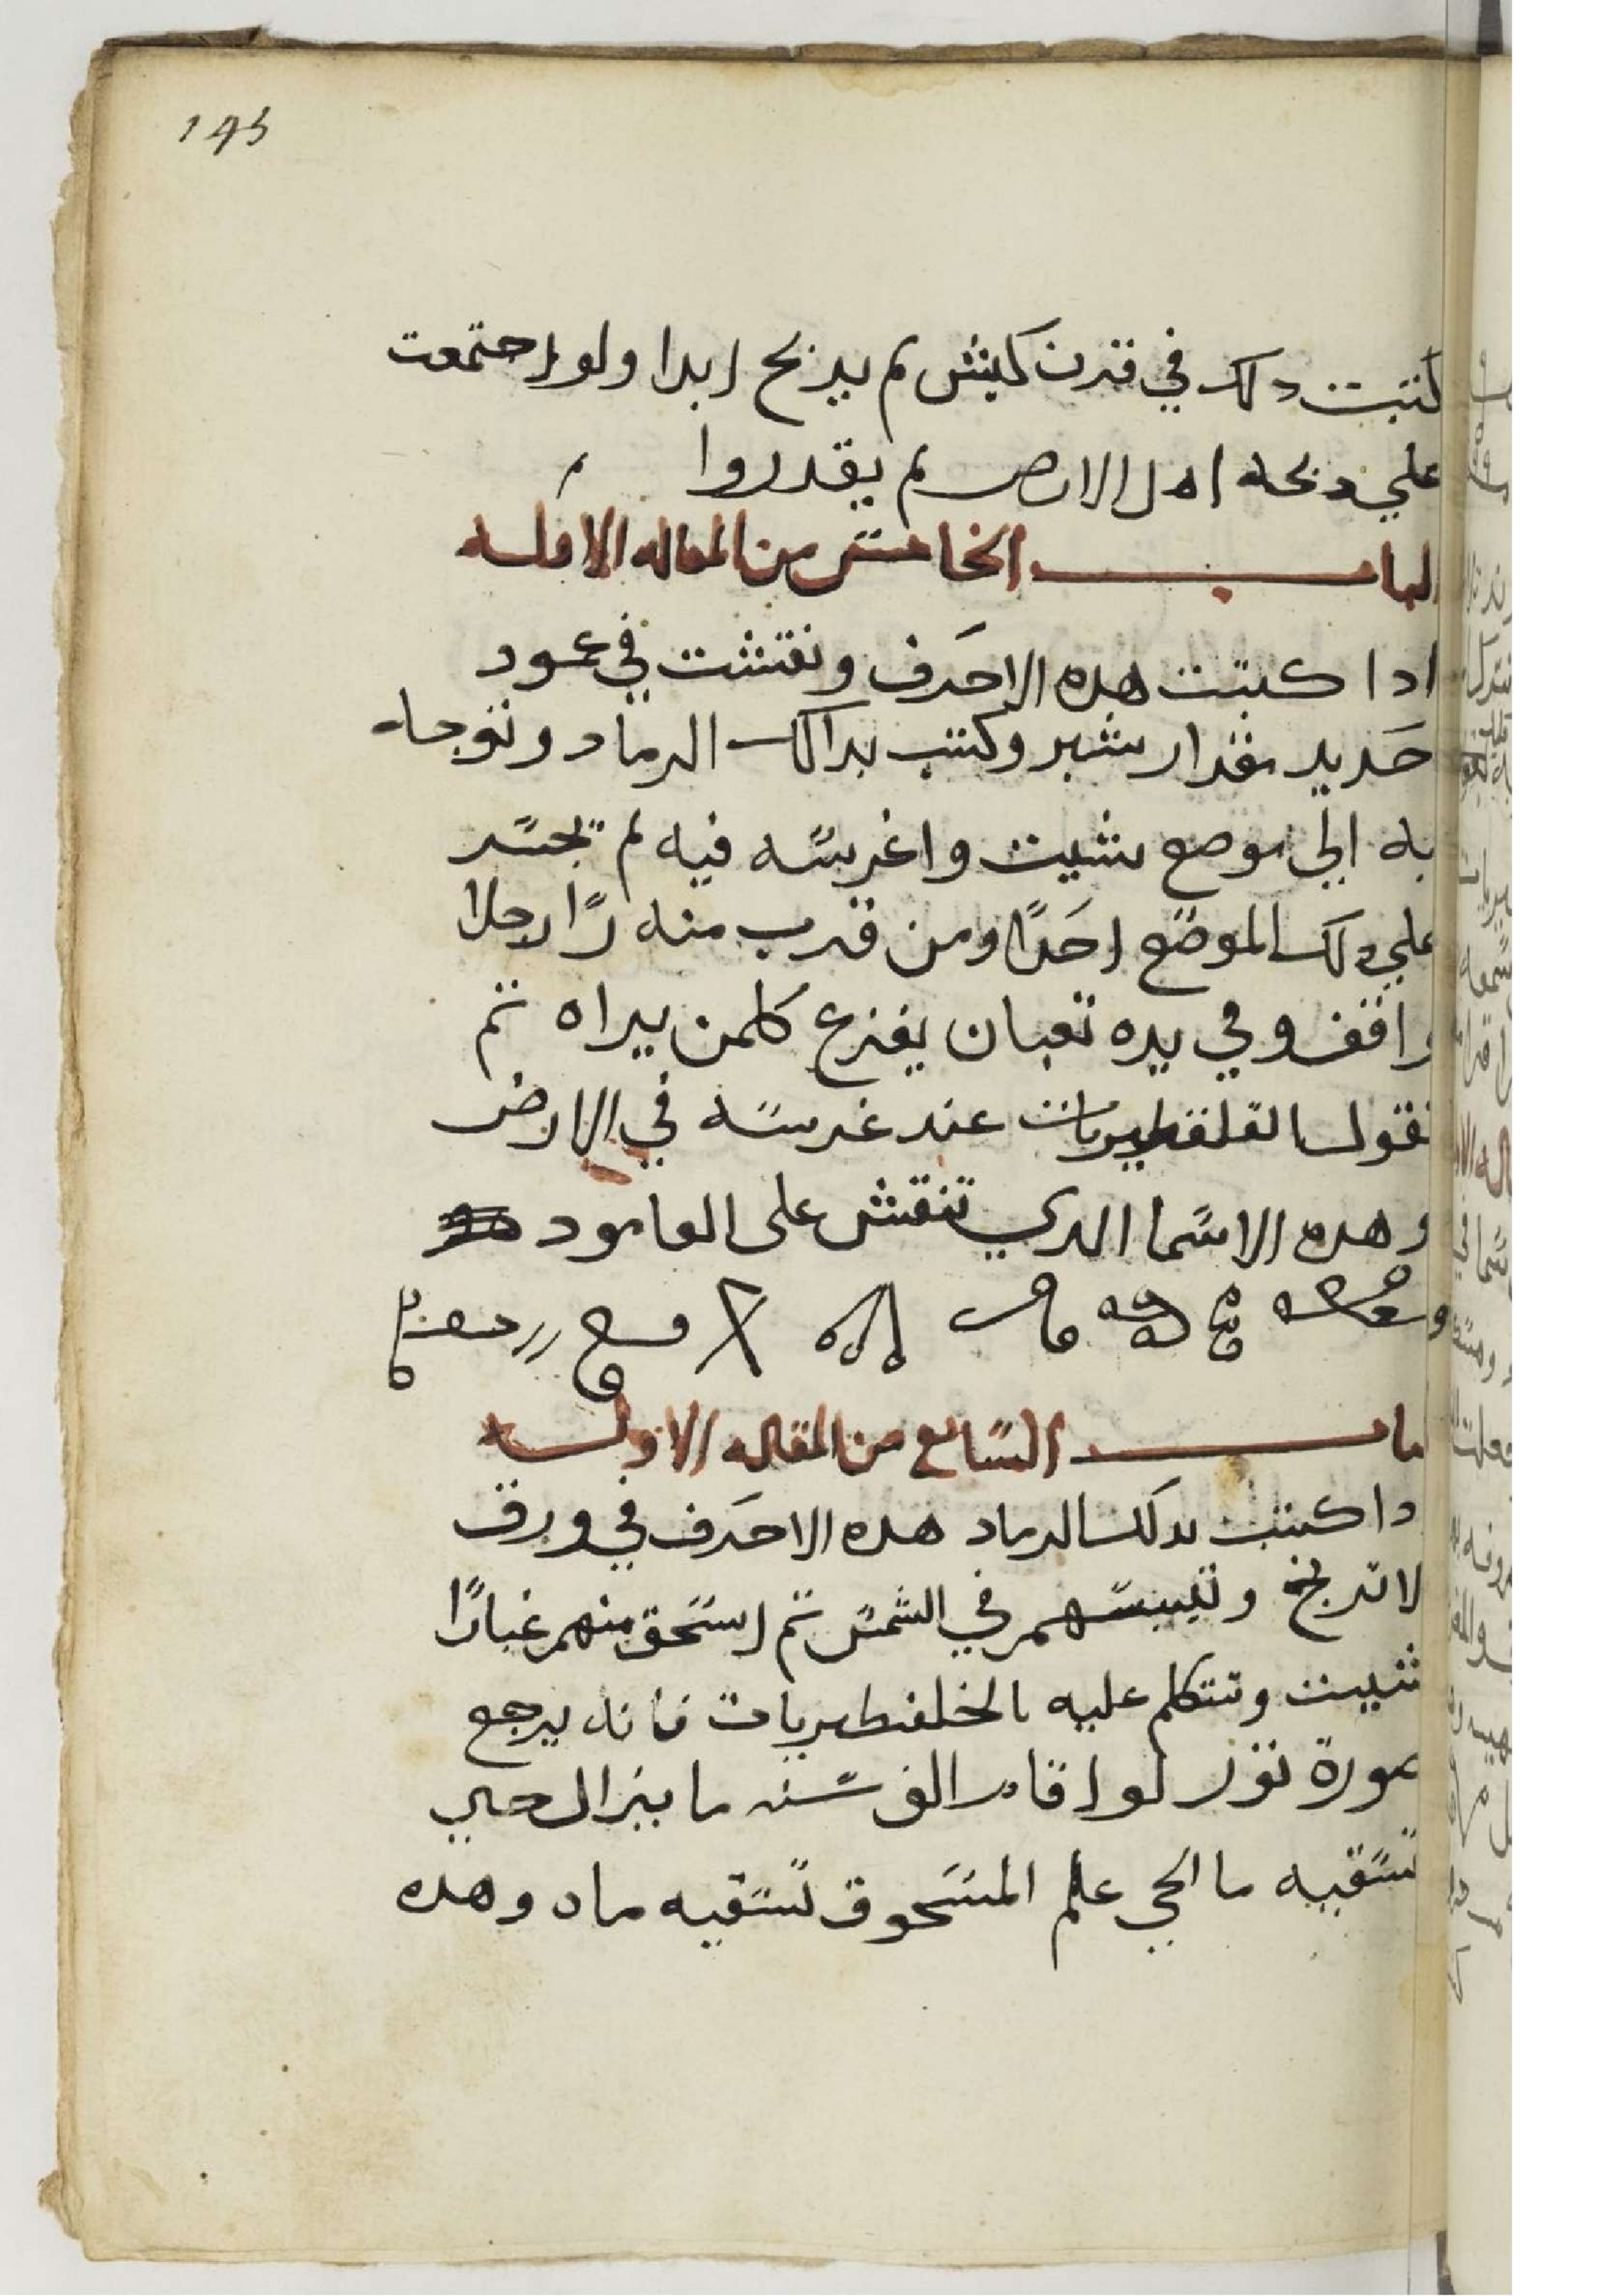 145
كتبت دلك في قرن كبش لم يدبح ابدا ولو اجتمعت
علي دبحه اهل الارض لم يقدروا
الباب الخامس من المقاله الاوله
ادا كتبت هده الاحرف ونقشت في عمود
حديد مقدار شبر وكتب بداك الرماد وتوجاه
به الي موضع شيت واغرسه فيه لم تجسر
علي دلك الموضع احدًا ومن قرب منه رًا رجلا
واقف وفي يده تعبان يفزع كلمن يراه تم
تقول القلفطيريات عند غرسه في الارض
وهده الاسما الدي تنقش على العامود
باب السابع من المقاله الاوله
دا كتبت بدلك الرماد هده الاحرف في ورق
وتيبسهم في الشمس تم اسحق منهم غبارًا
شيت وتتكلم عليه بالخلفطيريات فانه يرجع
صورة لو اقام الف سنه ما يزال حي
تسقيه ما الحي علم المسحوق تسقيه ماه وهده